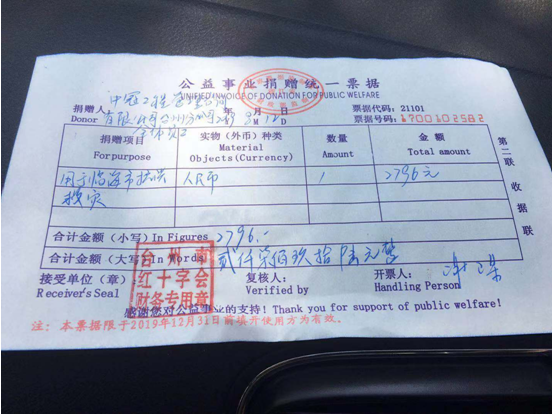 公益事业捐赠统一票据
UNIFIED INVOICE OF DONATION FOR PUBLIC WELFARE
捐赠人 中冠工程管理
Donor 有限公司台州分公司 年 月 日
Y M D
全体员工
票据代码: 21101
票据号码:
捐赠项目 实物（外币）种类 数量 金额
For purpose Material Objects(Currency) Amount Total amount
用于临海市抗洪 人民币 1 2796元
救灾
合计金额（小写）In Figures 2796.-
合计金额（大写）In Words 贰仟柒佰玖拾陆元整
接受单位（章）: 复核人: 开票人:
Receiver's Seal Verified by Handling Person
台州市
红十字会
财务专用章
感谢您对公益事业的支持! Thank you for support of public welfare!
注: 本票据限于2019年12月31日前填开使用方为有效。
第二联 收据联